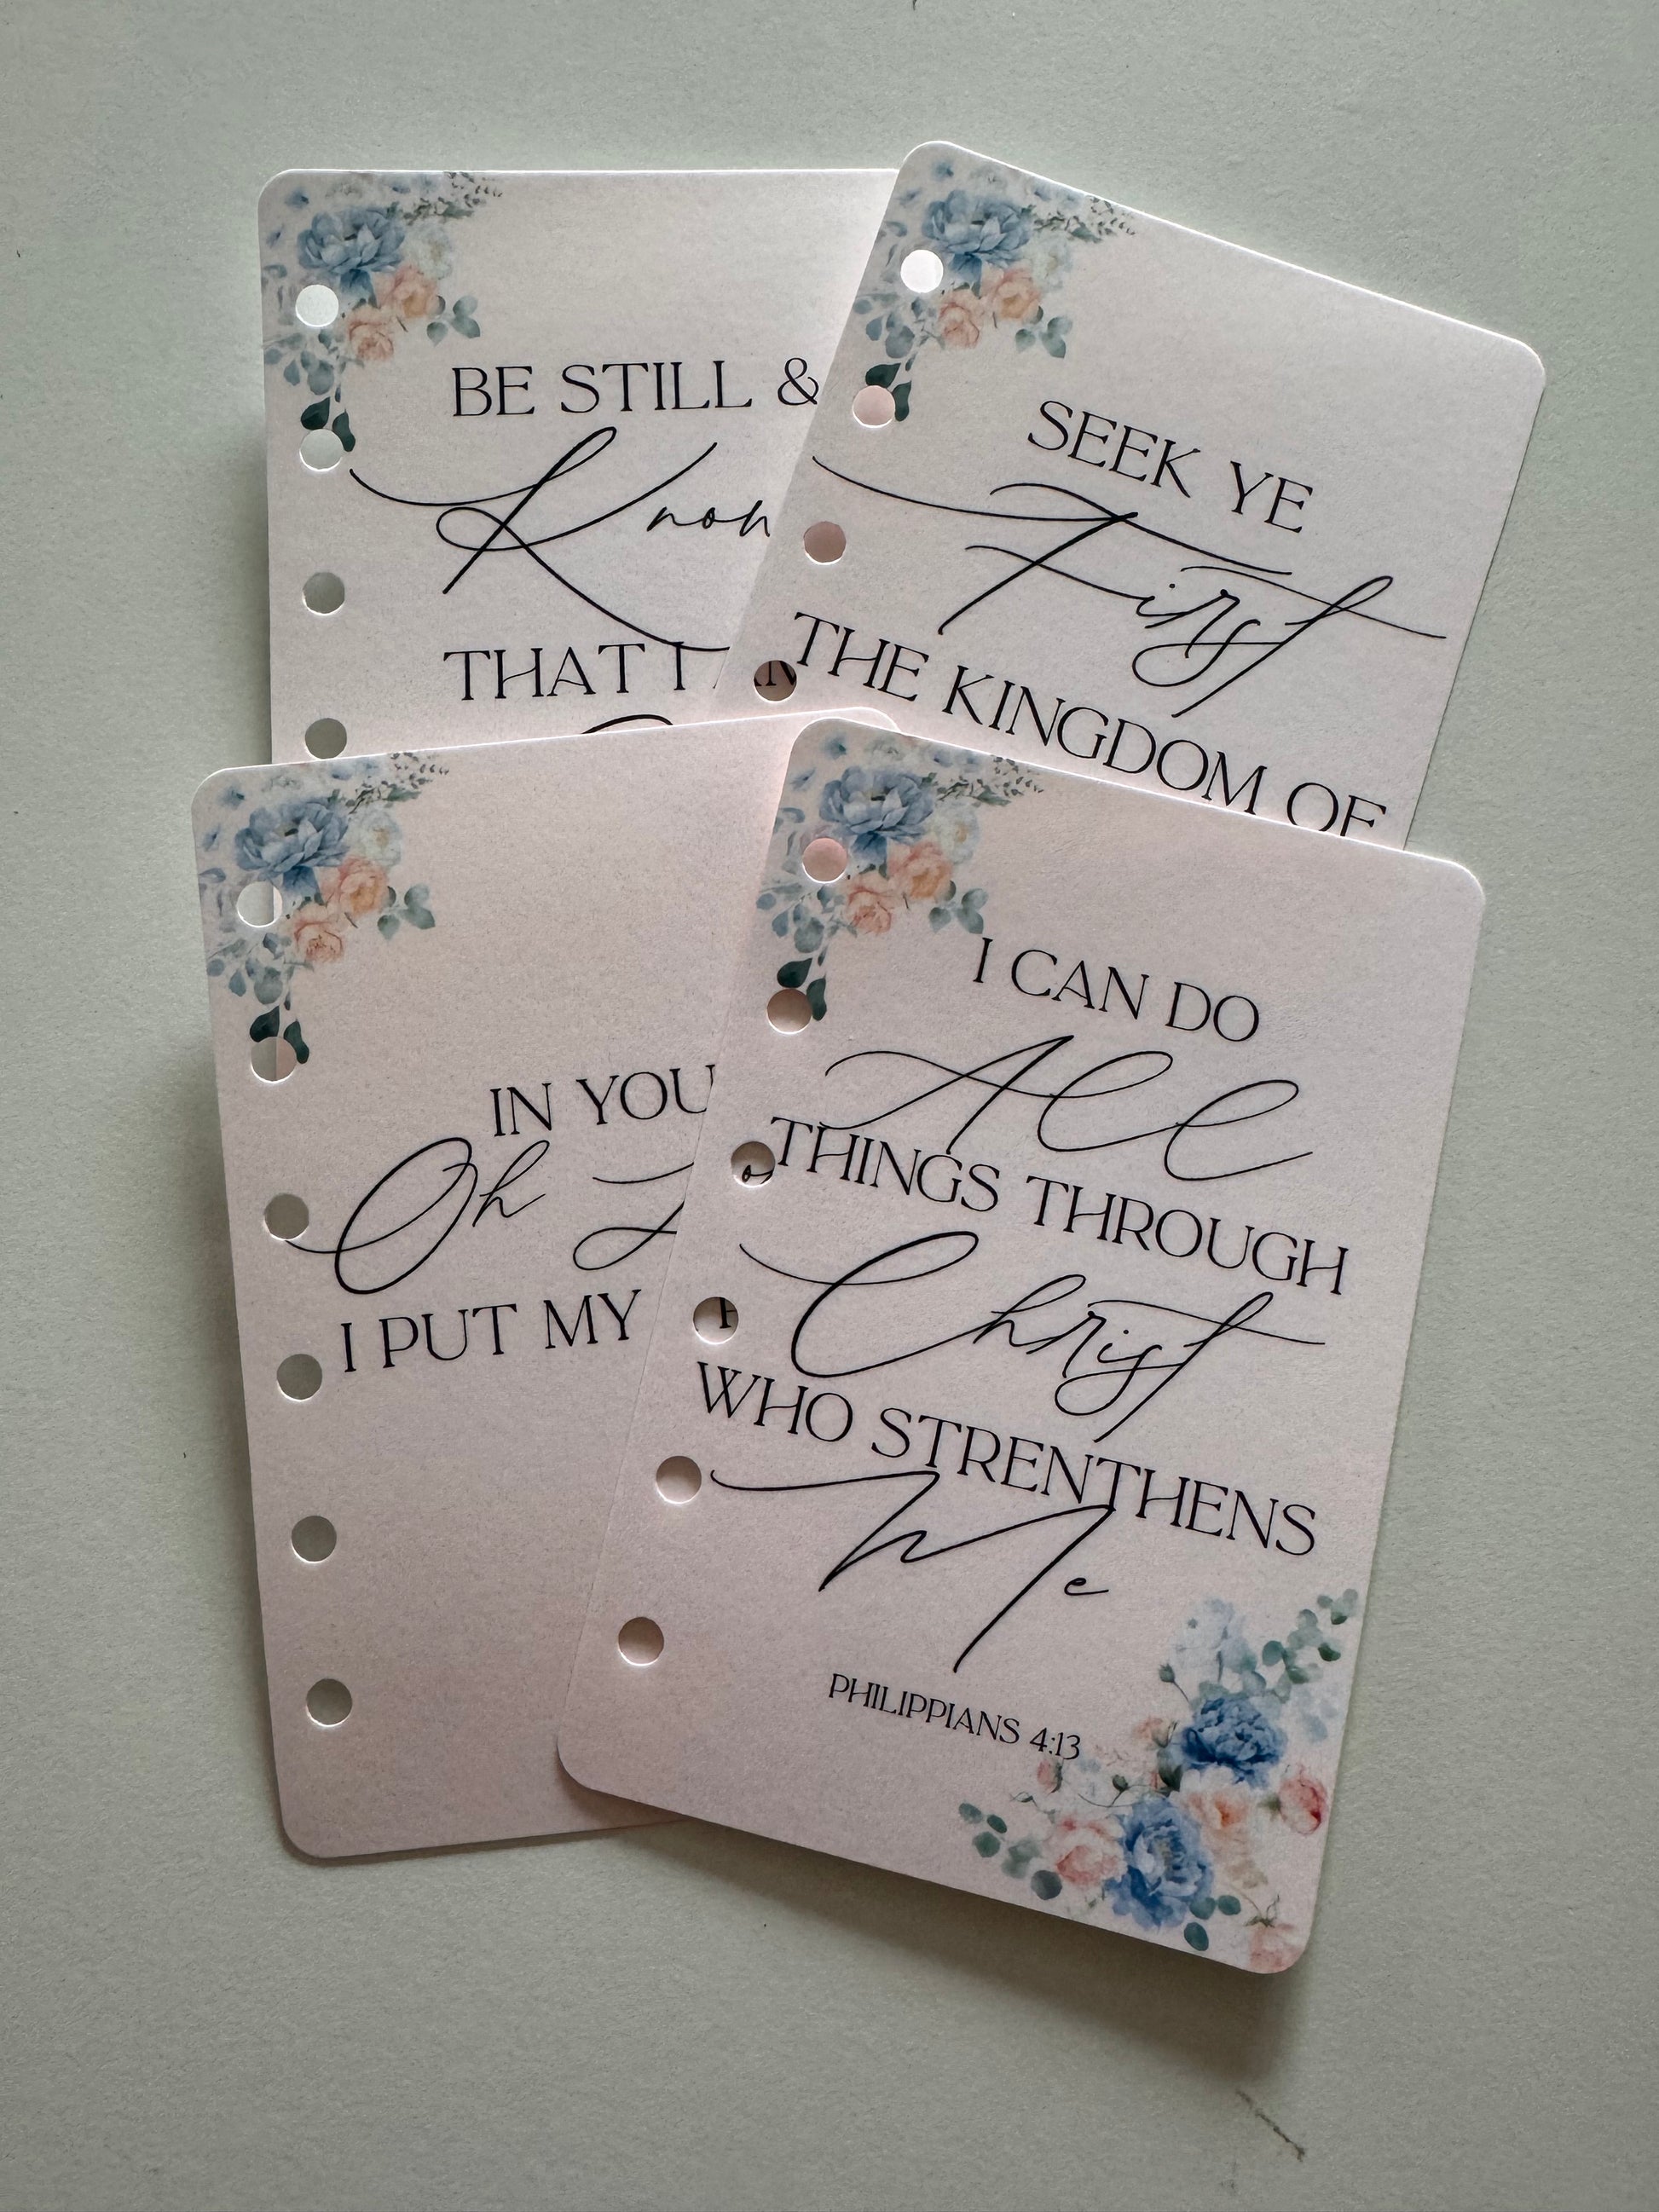 BE STILL &
Know
THAT I
SEEK YE
First
THE KINGDOM OF
IN YOU
Oh
I PUT MY
I CAN DO
All
THINGS THROUGH
Christ
WHO STRENTHENS
Me
PHILIPPIANS 4:13